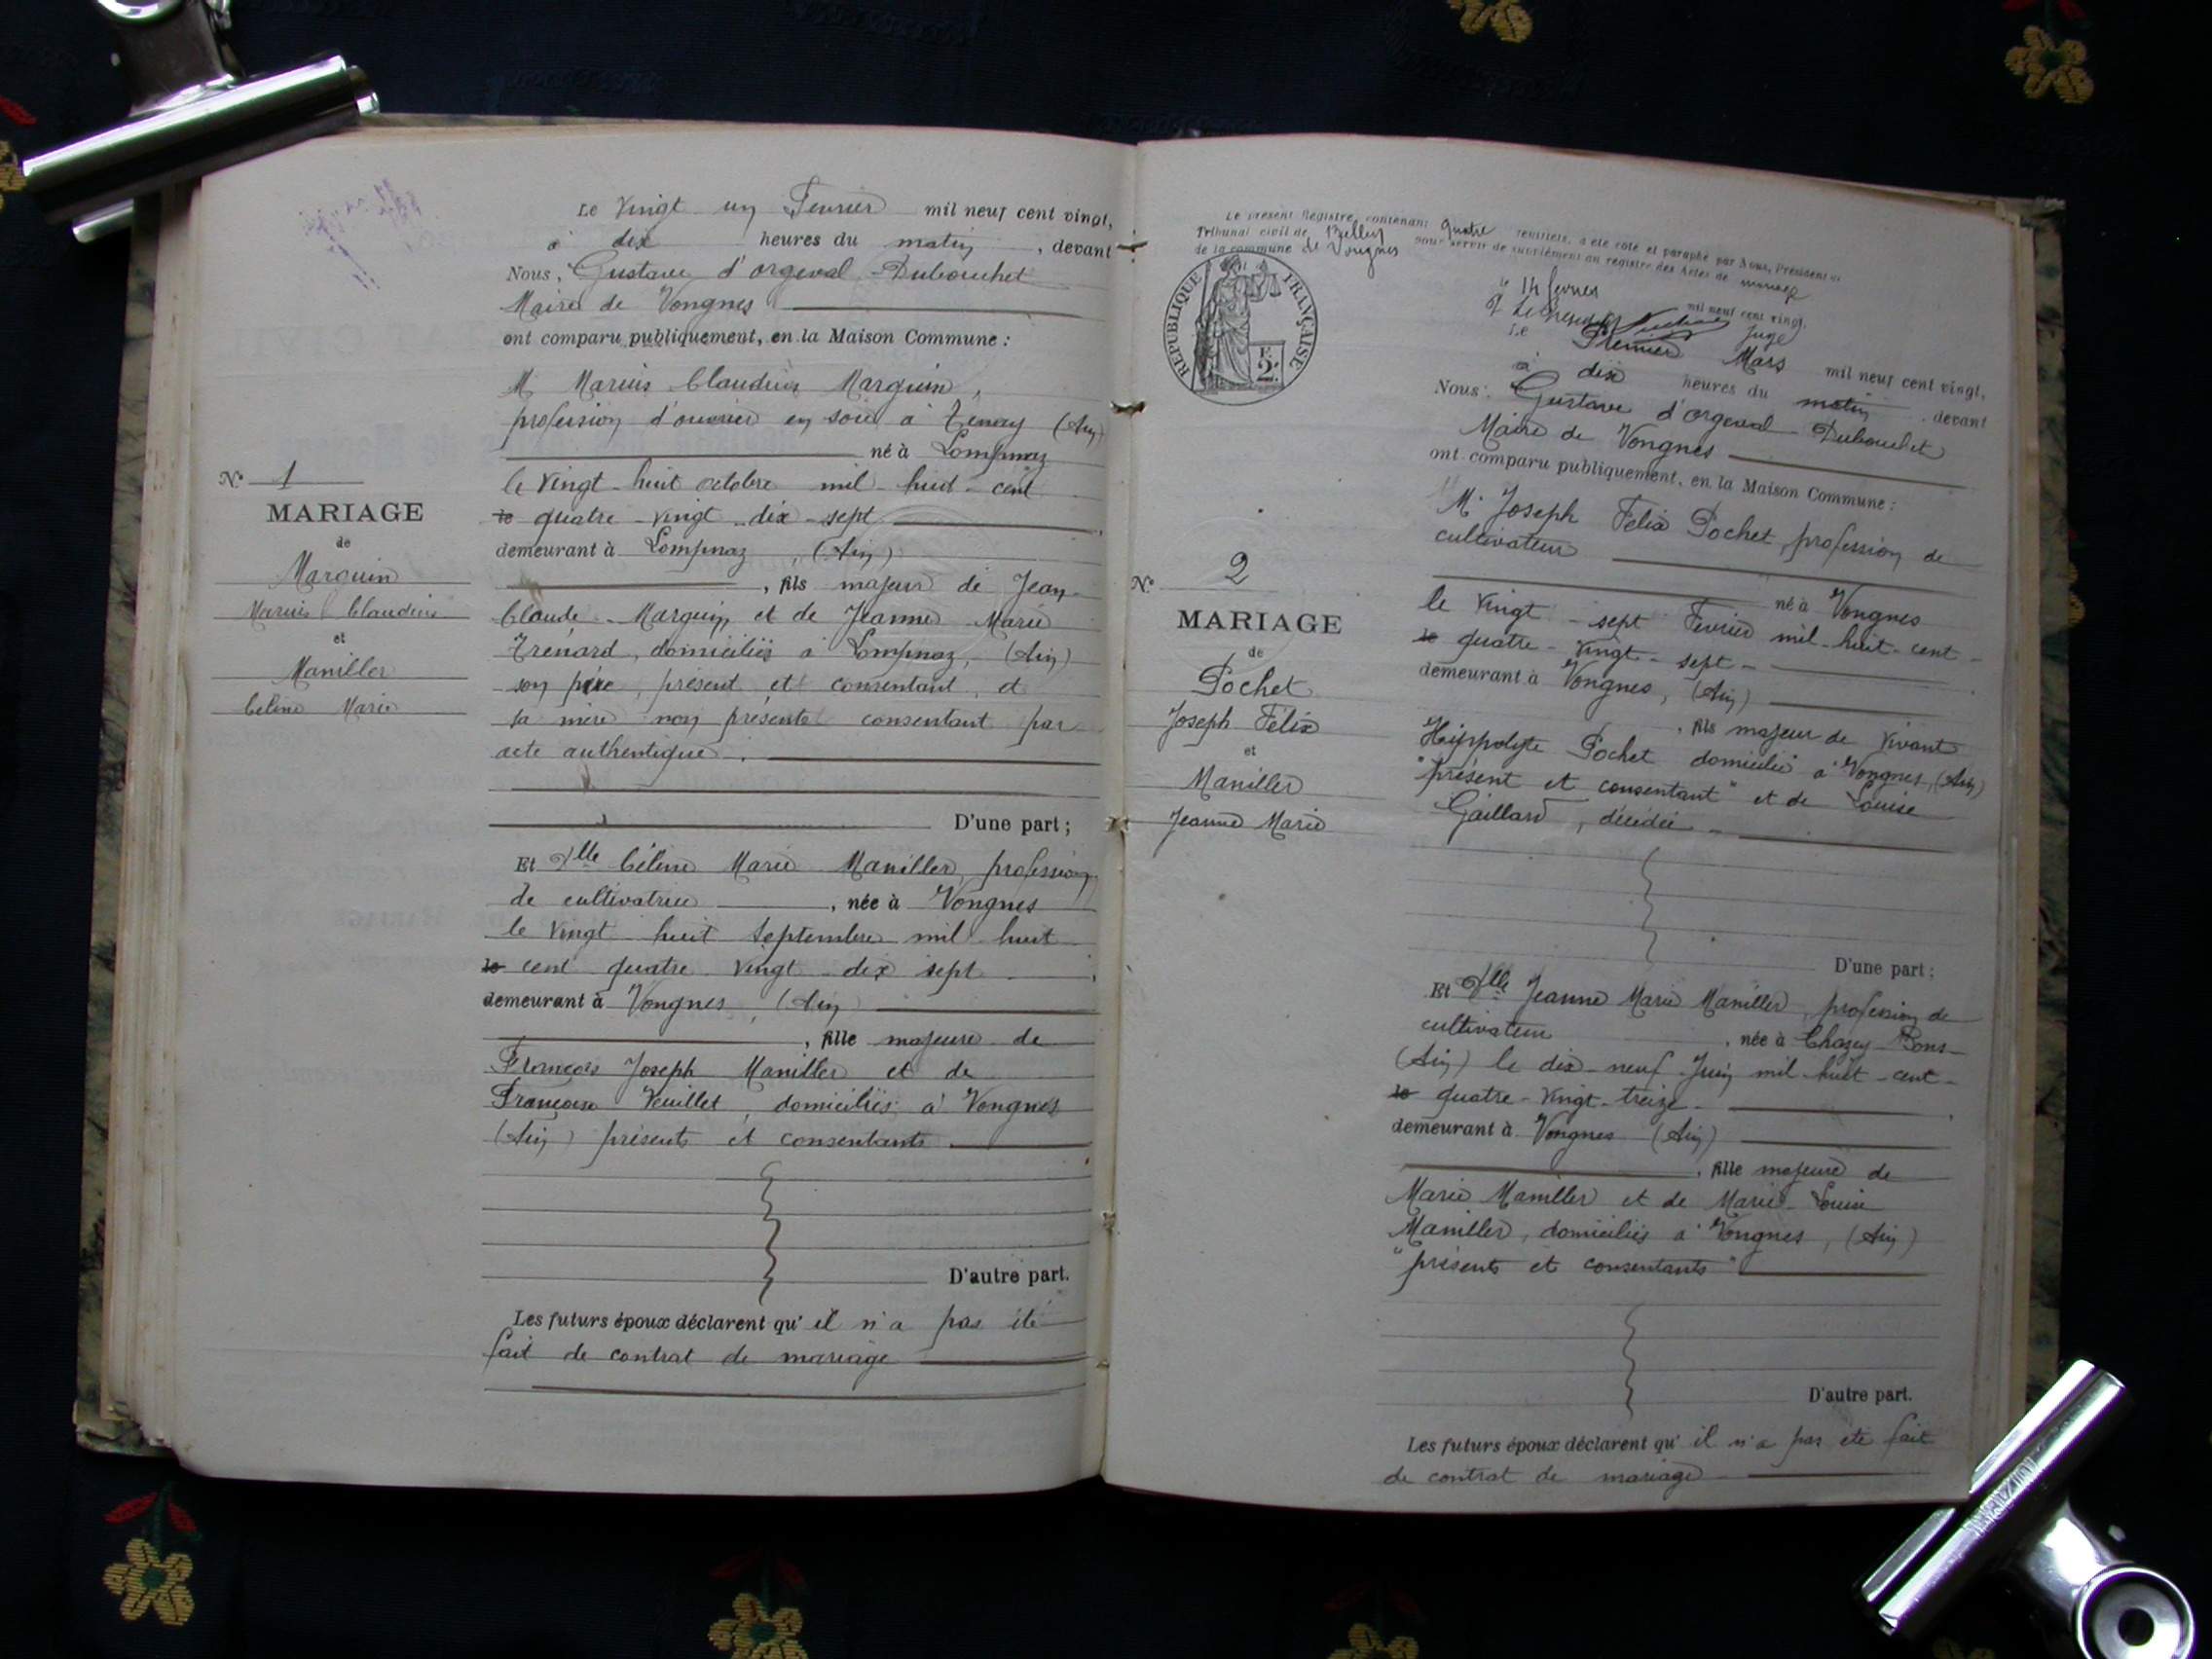 Le vingt un Fevrier mil neuf cent vingt,
à dix heures du matin, devant
Nous, Gustave d'orgeval Dubouchet
Maire de Vongnes
ont comparu publiquement, en la Maison Commune :
M. Marius Claudius Marguin,
profession d'ouvrier en soie à Tenay (Ain)
né à Lompnaz
le vingt-huit octobre mil-huit-cent
quatre-vingt-dix-sept
demeurant à Lompnaz, (Ain)
, fils majeur de Jean
Claude Marguin et de Jeanne Marie
Trénard, domiciliés à Lompnaz, (Ain)
son père, présent et consentant, et
sa mère non présente consentant par
acte authentique.
D'une part ;
Et Dlle Céline Marie Maniller, profession
de cultivatrice, née à Vongnes
le vingt huit Septembre mil huit
cent quatre vingt dix sept
demeurant à Vongnes, (Ain)
, fille majeure de
François Joseph Maniller et de
Françoise Veuillet, domiciliés à Vongnes
(Ain) présents et consentants.
D'autre part.
Les futurs époux déclarent qu'il n'a pas été
fait de contrat de mariage
N° 1
MARIAGE
de
Marguin
Marius Claudius
et
Maniller
Céline Marie
Le présent Registre, contenant quatre feuillets, a été coté et paraphé par Nous, Président du
Tribunal civil de Belley pour servir de supplément au registre des Actes de mariage
de la commune de Vongnes
le 14 fevrier mil neuf cent vingt.
Juge
RÉPUBLIQUE FRANÇAISE
2F.
Le Premier Mars mil neuf cent vingt,
à dix heures du matin, devant
Nous, Gustave d'orgeval Dubouchet
Maire de Vongnes
ont comparu publiquement, en la Maison Commune :
M. Joseph Felix Pochet, profession de
cultivateur
né à Vongnes
le vingt-sept Fevrier mil-huit-cent-
quatre-vingt-sept-
demeurant à Vongnes, (Ain)
, fils majeur de vivant
Hippolyte Pochet domicilié à Vongnes, (Ain)
"présent et consentant" et de Louise
Gaillard, décédée
D'une part ;
Et Dlle Jeanne Marie Maniller, profession de
cultivateur, née à Chazey-Bons
(Ain) le dix-neuf Juin mil-huit-cent-
quatre-vingt-treize
demeurant à Vongnes (Ain)
, fille majeure de
Marie Maniller et de Marie-Louise
Maniller, domiciliés à Vongnes, (Ain)
"présents et consentants"
D'autre part.
Les futurs époux déclarent qu'il n'a pas été fait
de contrat de mariage
N° 2
MARIAGE
de
Pochet
Joseph Félix
et
Maniller
Jeanne Marie